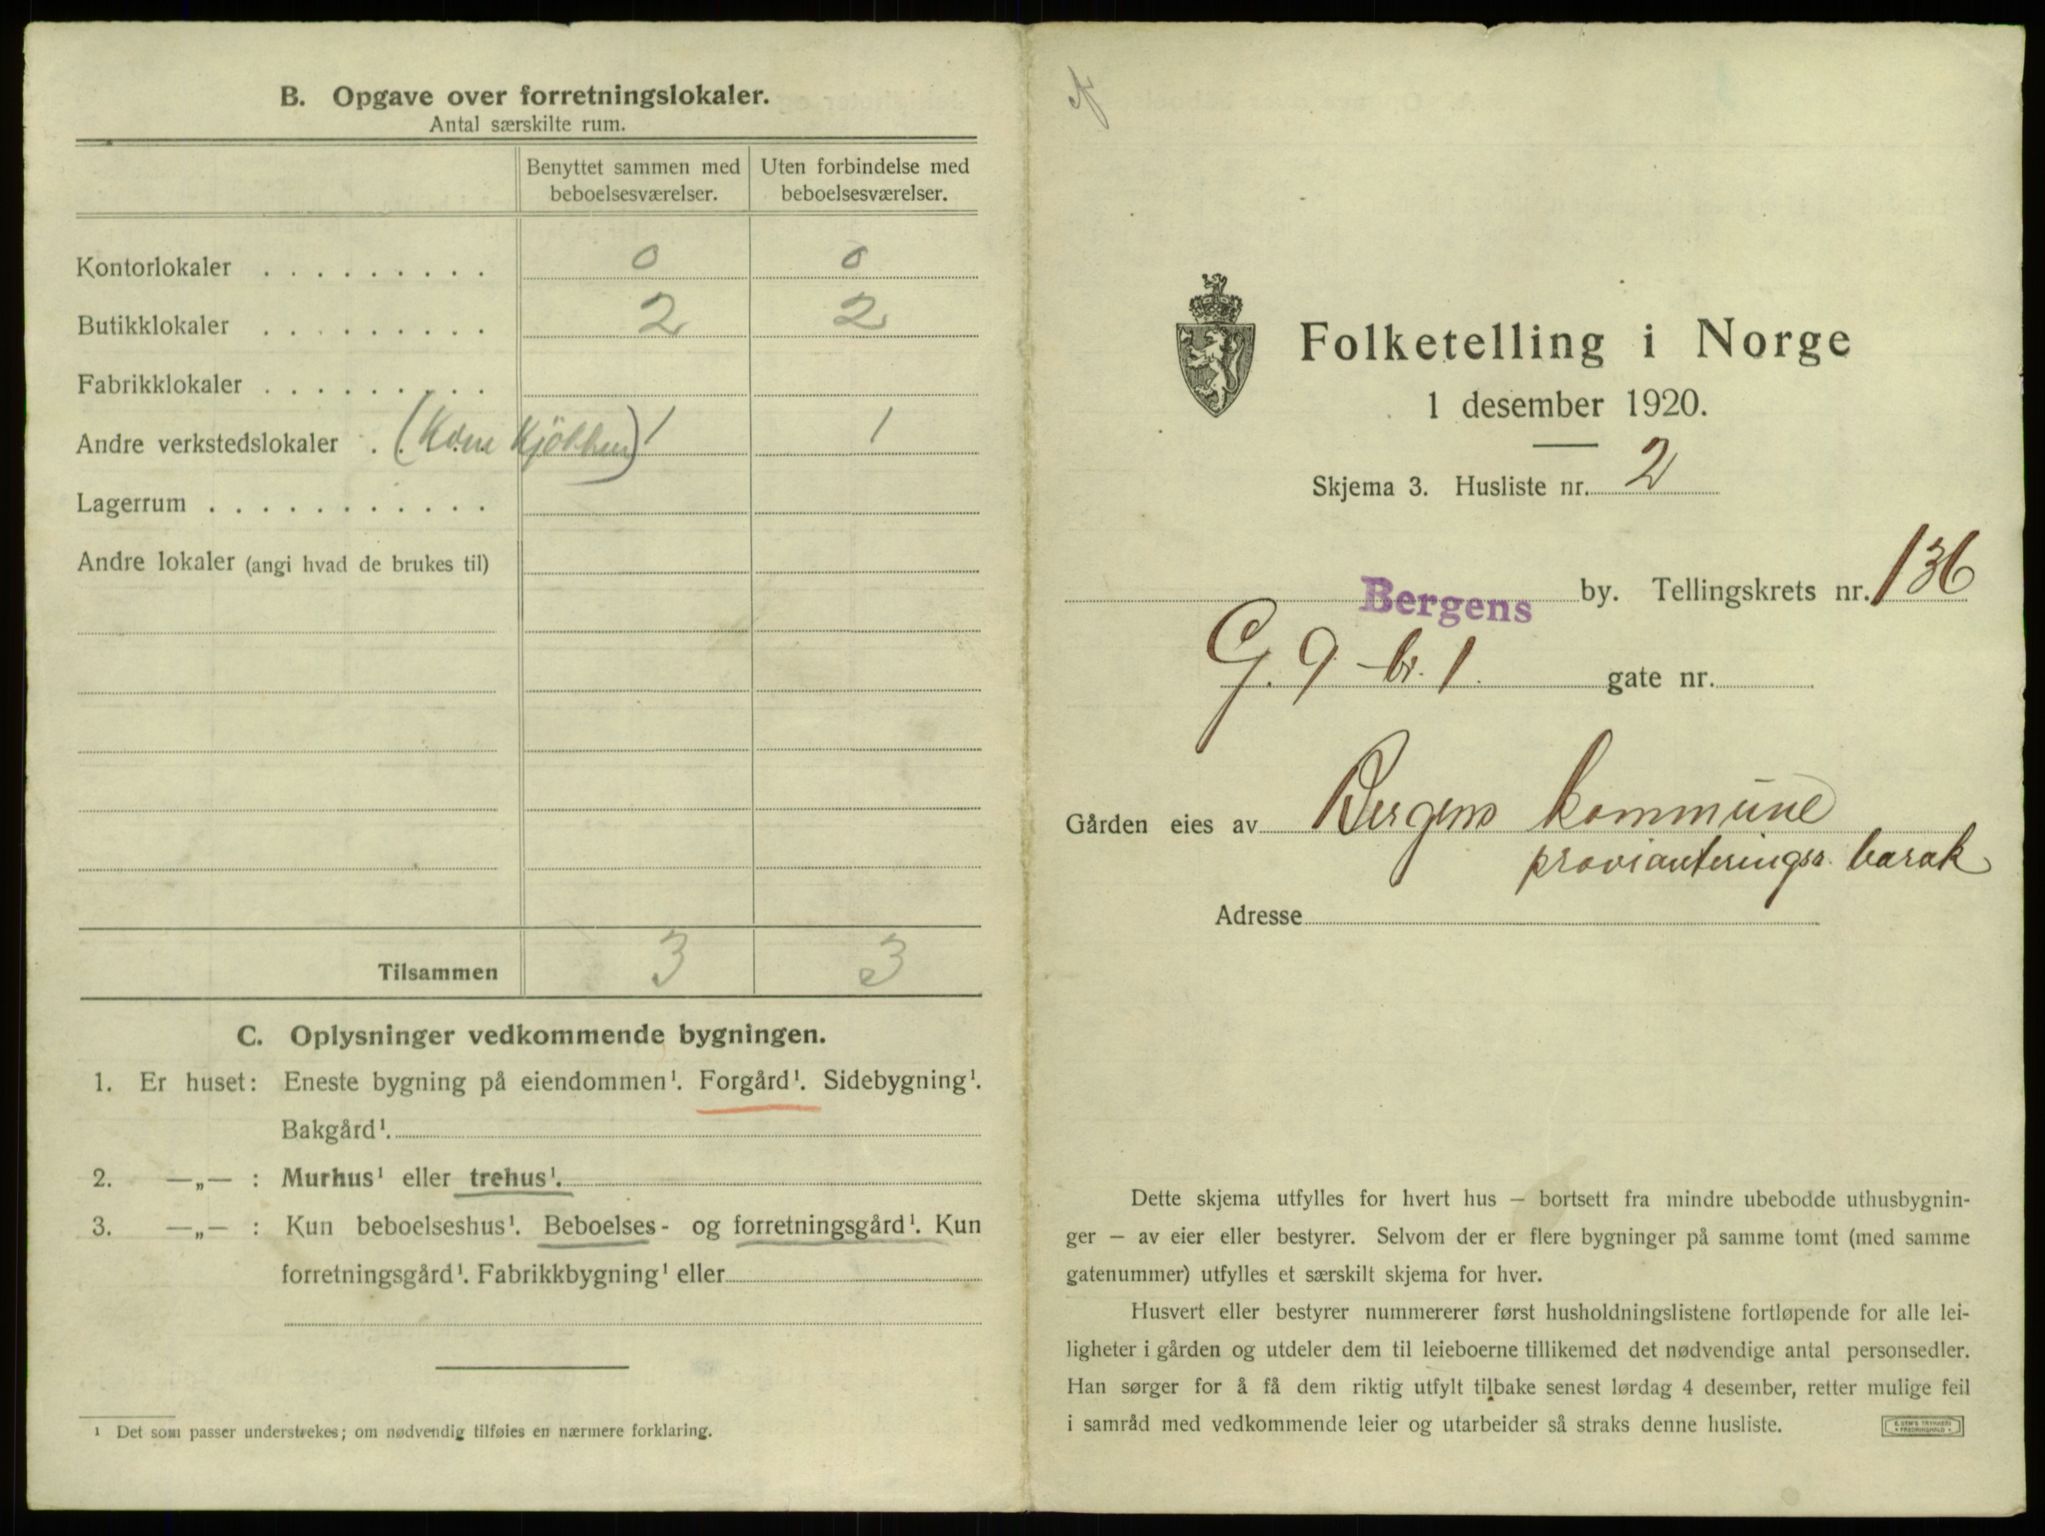 B. Opgave over forretningslokaler.
Antal særskilte rum.
Benyttet sammen med beboelsesværelser.
Uten forbindelse med beboelsesværelser.
Kontorlokaler . . . . . . . . . 0 0
Butikklokaler . . . . . . . . . 2 2
Fabrikklokaler . . . . . . . . .
Andre verkstedslokaler . . (Kom Kjökken) 1 1
Lagerrum . . . . . . . . . . .
Andre lokaler (angi hvad de brukes til)
Tilsammen 3 3
C. Oplysninger vedkommende bygningen.
1. Er huset: Eneste bygning på eiendommen¹. Forgård¹. Sidebygning¹.
Bakgård¹.
2. —„— : Murhus¹ eller trehus¹.
3. —„— : Kun beboelseshus¹. Beboelses- og forretningsgård¹. Kun
forretningsgård¹. Fabrikkbygning¹ eller
¹ Det som passer understrekes; om nødvendig tilføies en nærmere forklaring.
Folketelling i Norge
1 desember 1920.
Skjema 3. Husliste nr. 2
Bergens by. Tellingskrets nr. 136
G. 9 br. 1. gate nr.
Gården eies av Bergens kommune
provianterings barak
Adresse
Dette skjema utfylles for hvert hus — bortsett fra mindre ubebodde uthusbygnin-
ger — av eier eller bestyrer. Selvom der er flere bygninger på samme tomt (med samme
gatenummer) utfylles et særskilt skjema for hver.
Husvert eller bestyrer nummererer først husholdningslistene fortløpende for alle lei-
ligheter i gården og utdeler dem til leieboerne tillikemed det nødvendige antal personsedler.
Han sørger for å få dem riktig utfylt tilbake senest lørdag 4 desember, retter mulige feil
i samråd med vedkommende leier og utarbeider så straks denne husliste.